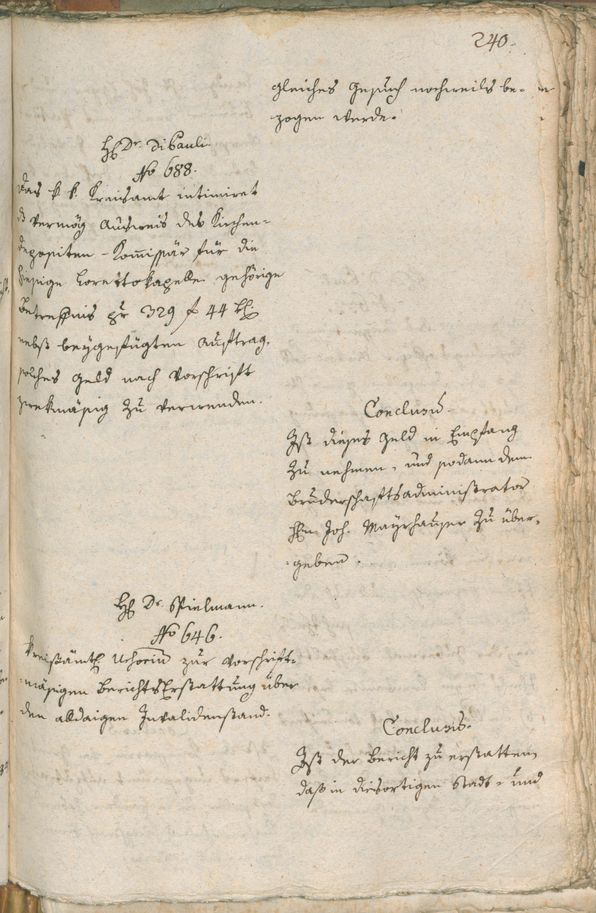 240.
gleiches Gesuch nochmals be-
zogen werde.
H. Dr. Di Pauli.
No 688.
Das k. k. Kreisamt intimiret
vermög Ausweis des Kirchen-
depositen-Kommißär für die
hiesige Loretokapelle gehörige
Betreffnis pr 329 f 44 x
nebst beygefügten Auftrag,
solches Geld nach Vorschrift
zwekmäßig zu verwenden.
Conclusum.
Ist dieses Geld in Empfang
zu nehmen, und sodann dem
Bruderschaftsadministrator
H. Joh. Mayrhauser zu über-
geben.
H. Dr. Spielmann.
No 646.
Kreisämtl. zur vorschrift-
mäßigen Berichts Erstattung über
den alldaigen Invalidenstand.
Conclusum.
Ist der Bericht zu erstatten,
daß in diesortigen Stadt- und